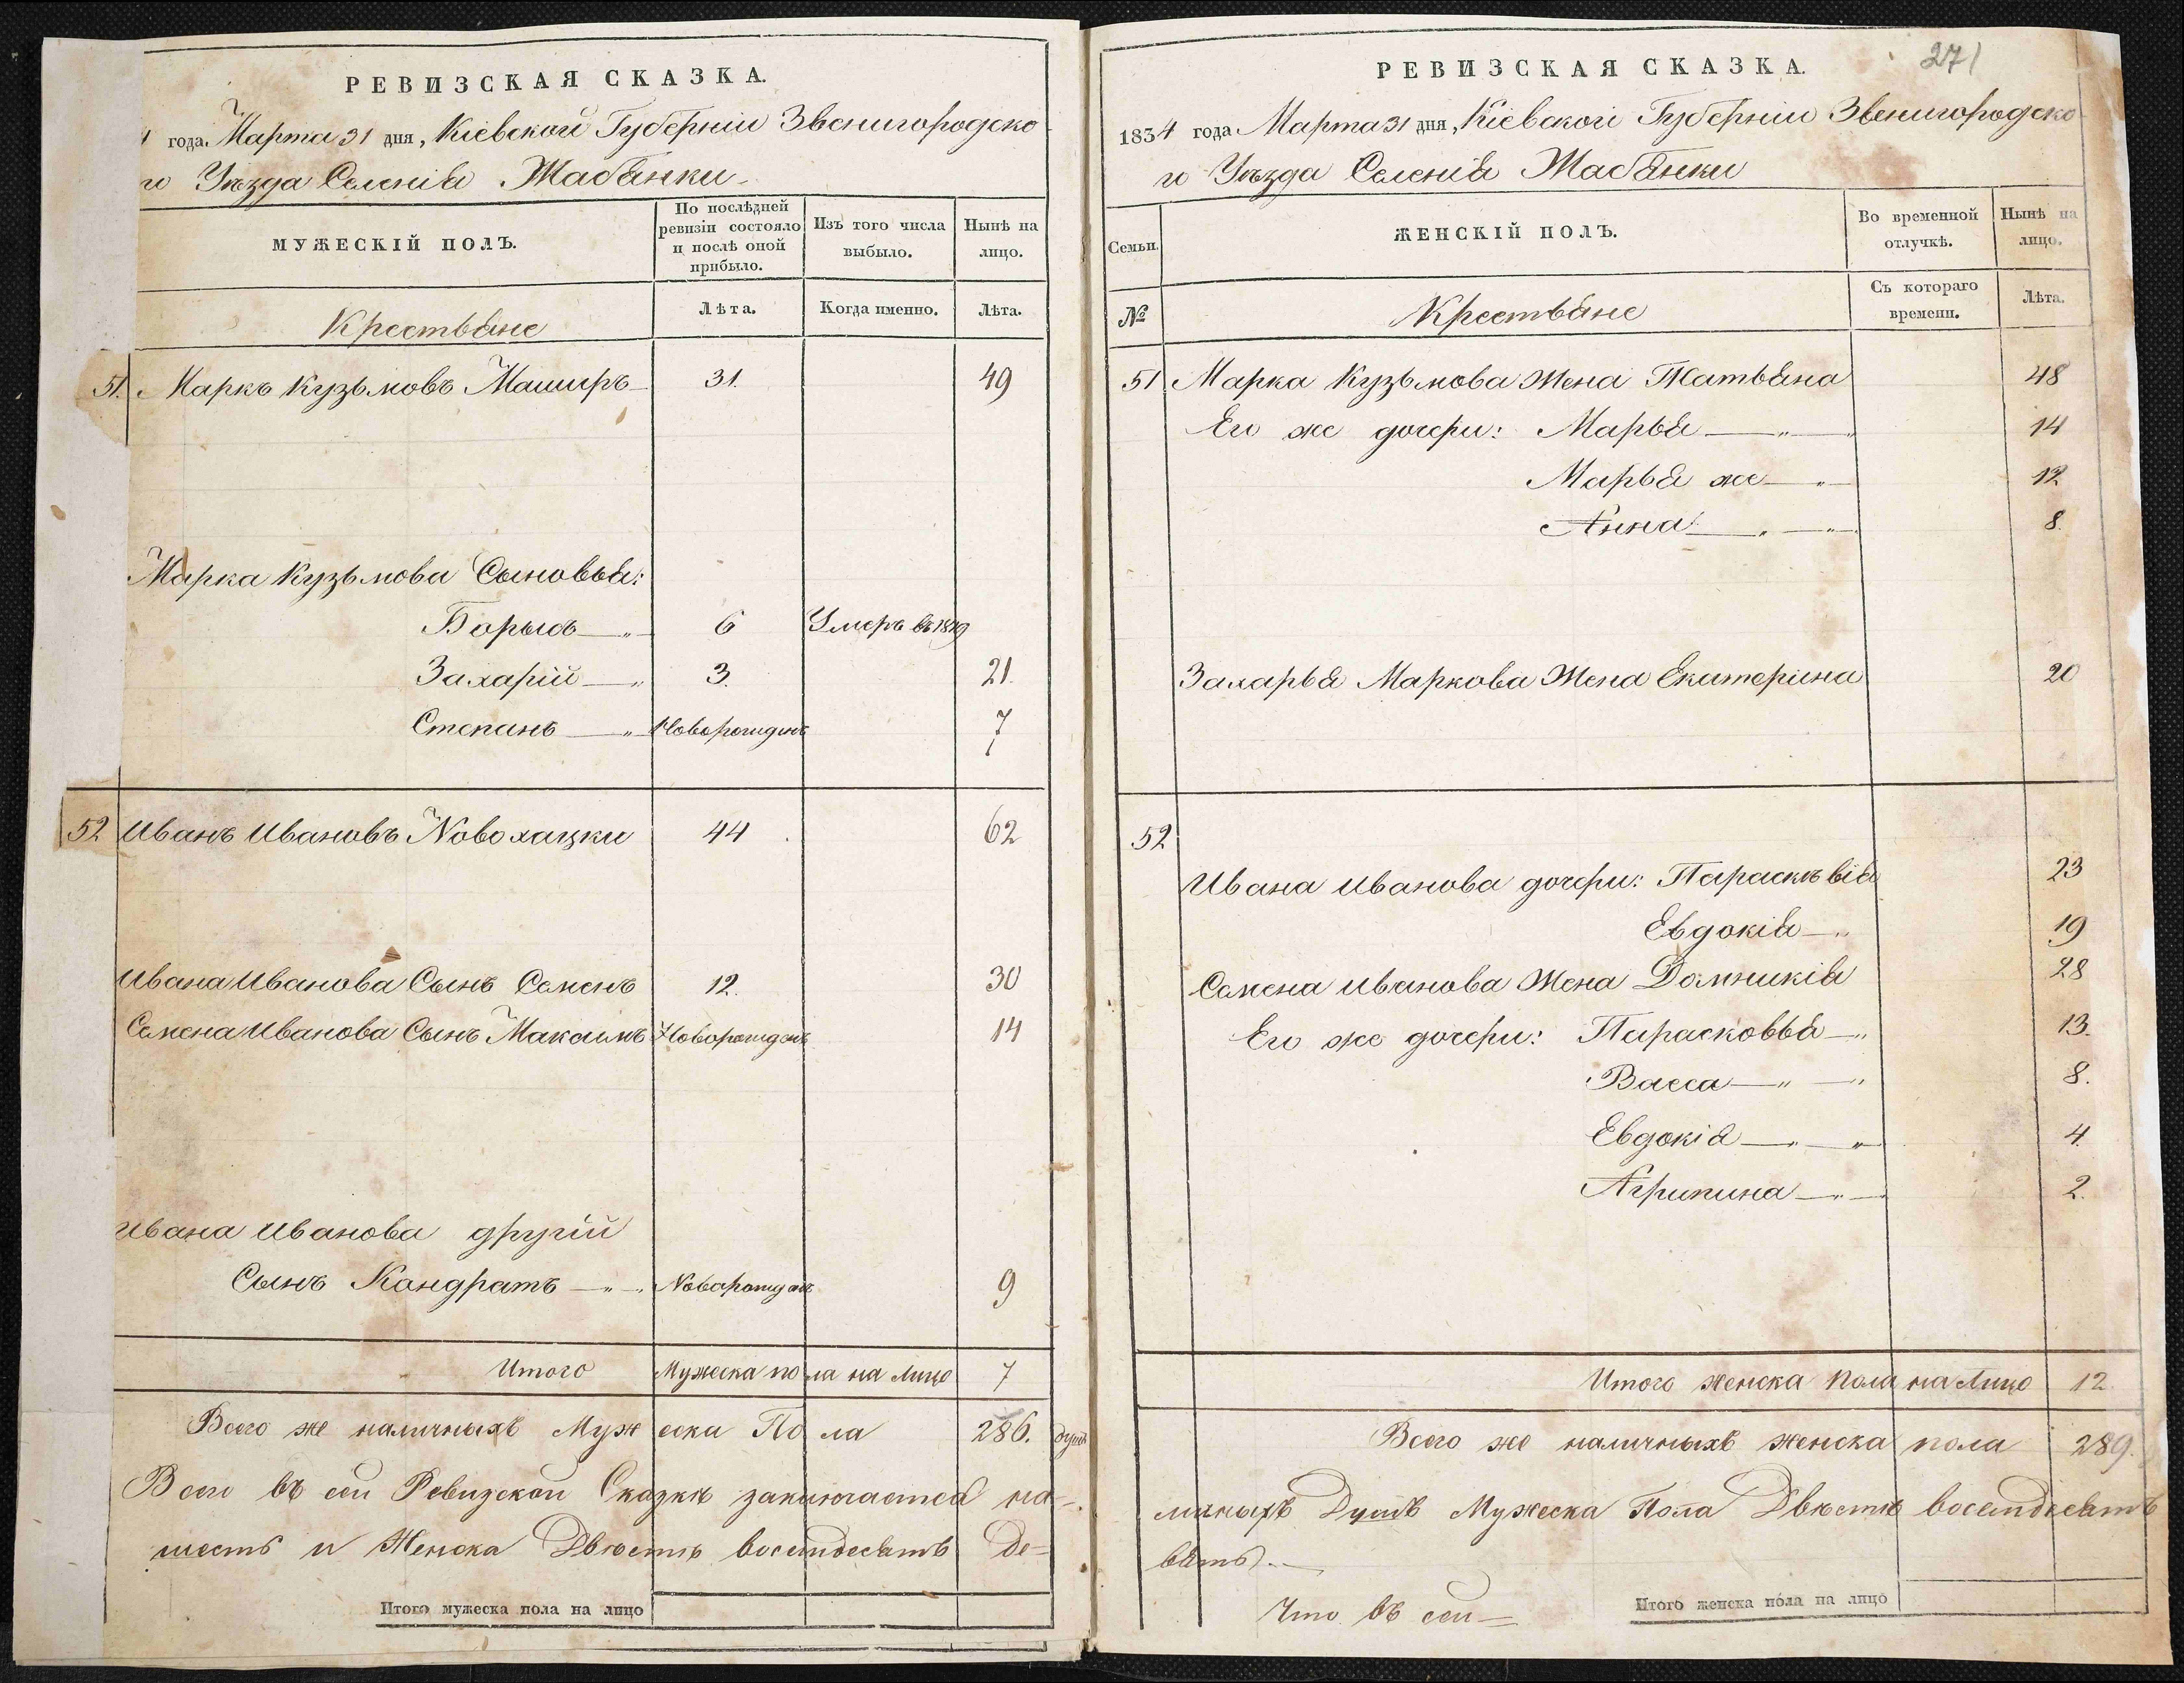 РЕВИЗСКАЯ СКАЗКА.
года Марта 31 дня, Кіевской Губерніи Звенигородско
го Уѣзда Селенія Жабянки
МУЖЕСКІЙ ПОЛЪ.
По послѣдней ревизіи состояло и послѣ оной прибыло.
Изъ того числа выбыло.
Нынѣ на лицо.
Крестьяне
Лѣта.
Когда именно.
Лѣта.
51. Маркъ Кузьмовъ Маширъ 31. 49
Марка Кузьмова Сыновья:
Борысъ — „ 6 Умеръ въ 1819
Захарій — „ 3. 21.
Степанъ — „ Новорожденъ 7
52 Иванъ Ивановъ Новохацки 44 62
Ивана Иванова Сынъ Семенъ 12. 30
Семена Иванова Сынъ Максимъ Новорожденъ 14
Ивана Иванова другій
Сынъ Кондратъ — „ — „ Новорожденъ 9
Итого Мужеска пола на Лицо 7
Всего же наличныхъ Мужеска Пола 286. душъ
Всего въ сей Ревизской Сказкѣ заключается на=
шесть и Женска Двѣсти восемдесятъ Де=
Итого мужеска пола на лицо
271
РЕВИЗСКАЯ СКАЗКА.
1834 года Марта 31 дня, Кіевской Губерніи Звенигородско
го Уѣзда Селенія Жабянки
Семьи.
ЖЕНСКІЙ ПОЛЪ.
Во временной отлучкѣ.
Нынѣ на лицо.
№
Крестьяне
Съ котораго времени.
Лѣта.
51 Марка Кузьмова Жена Татьяна 48
Его же дочери: Марья — „ — „ 14
Марья же — „ — 12
Анна — „ — „ 8.
Захарья Маркова Жена Екатерина 20
52
Ивана Иванова дочери: Параскѣвія 23
Евдокія — „ 19
Семена Иванова Жена Домникія 28
Его же дочери: Парасковья — „ 13.
Васса — „ — „ 8.
Евдокія — „ — „ 4.
Агрипина — „ — 2.
Итого женска пола на Лицо 12.
Всего же наличныхъ женска пола 289.
личныхъ Душъ Мужеска Пола Двѣстѣ восемдесятъ
вять. —
Что въ сей =
Итого женска пола на лицо